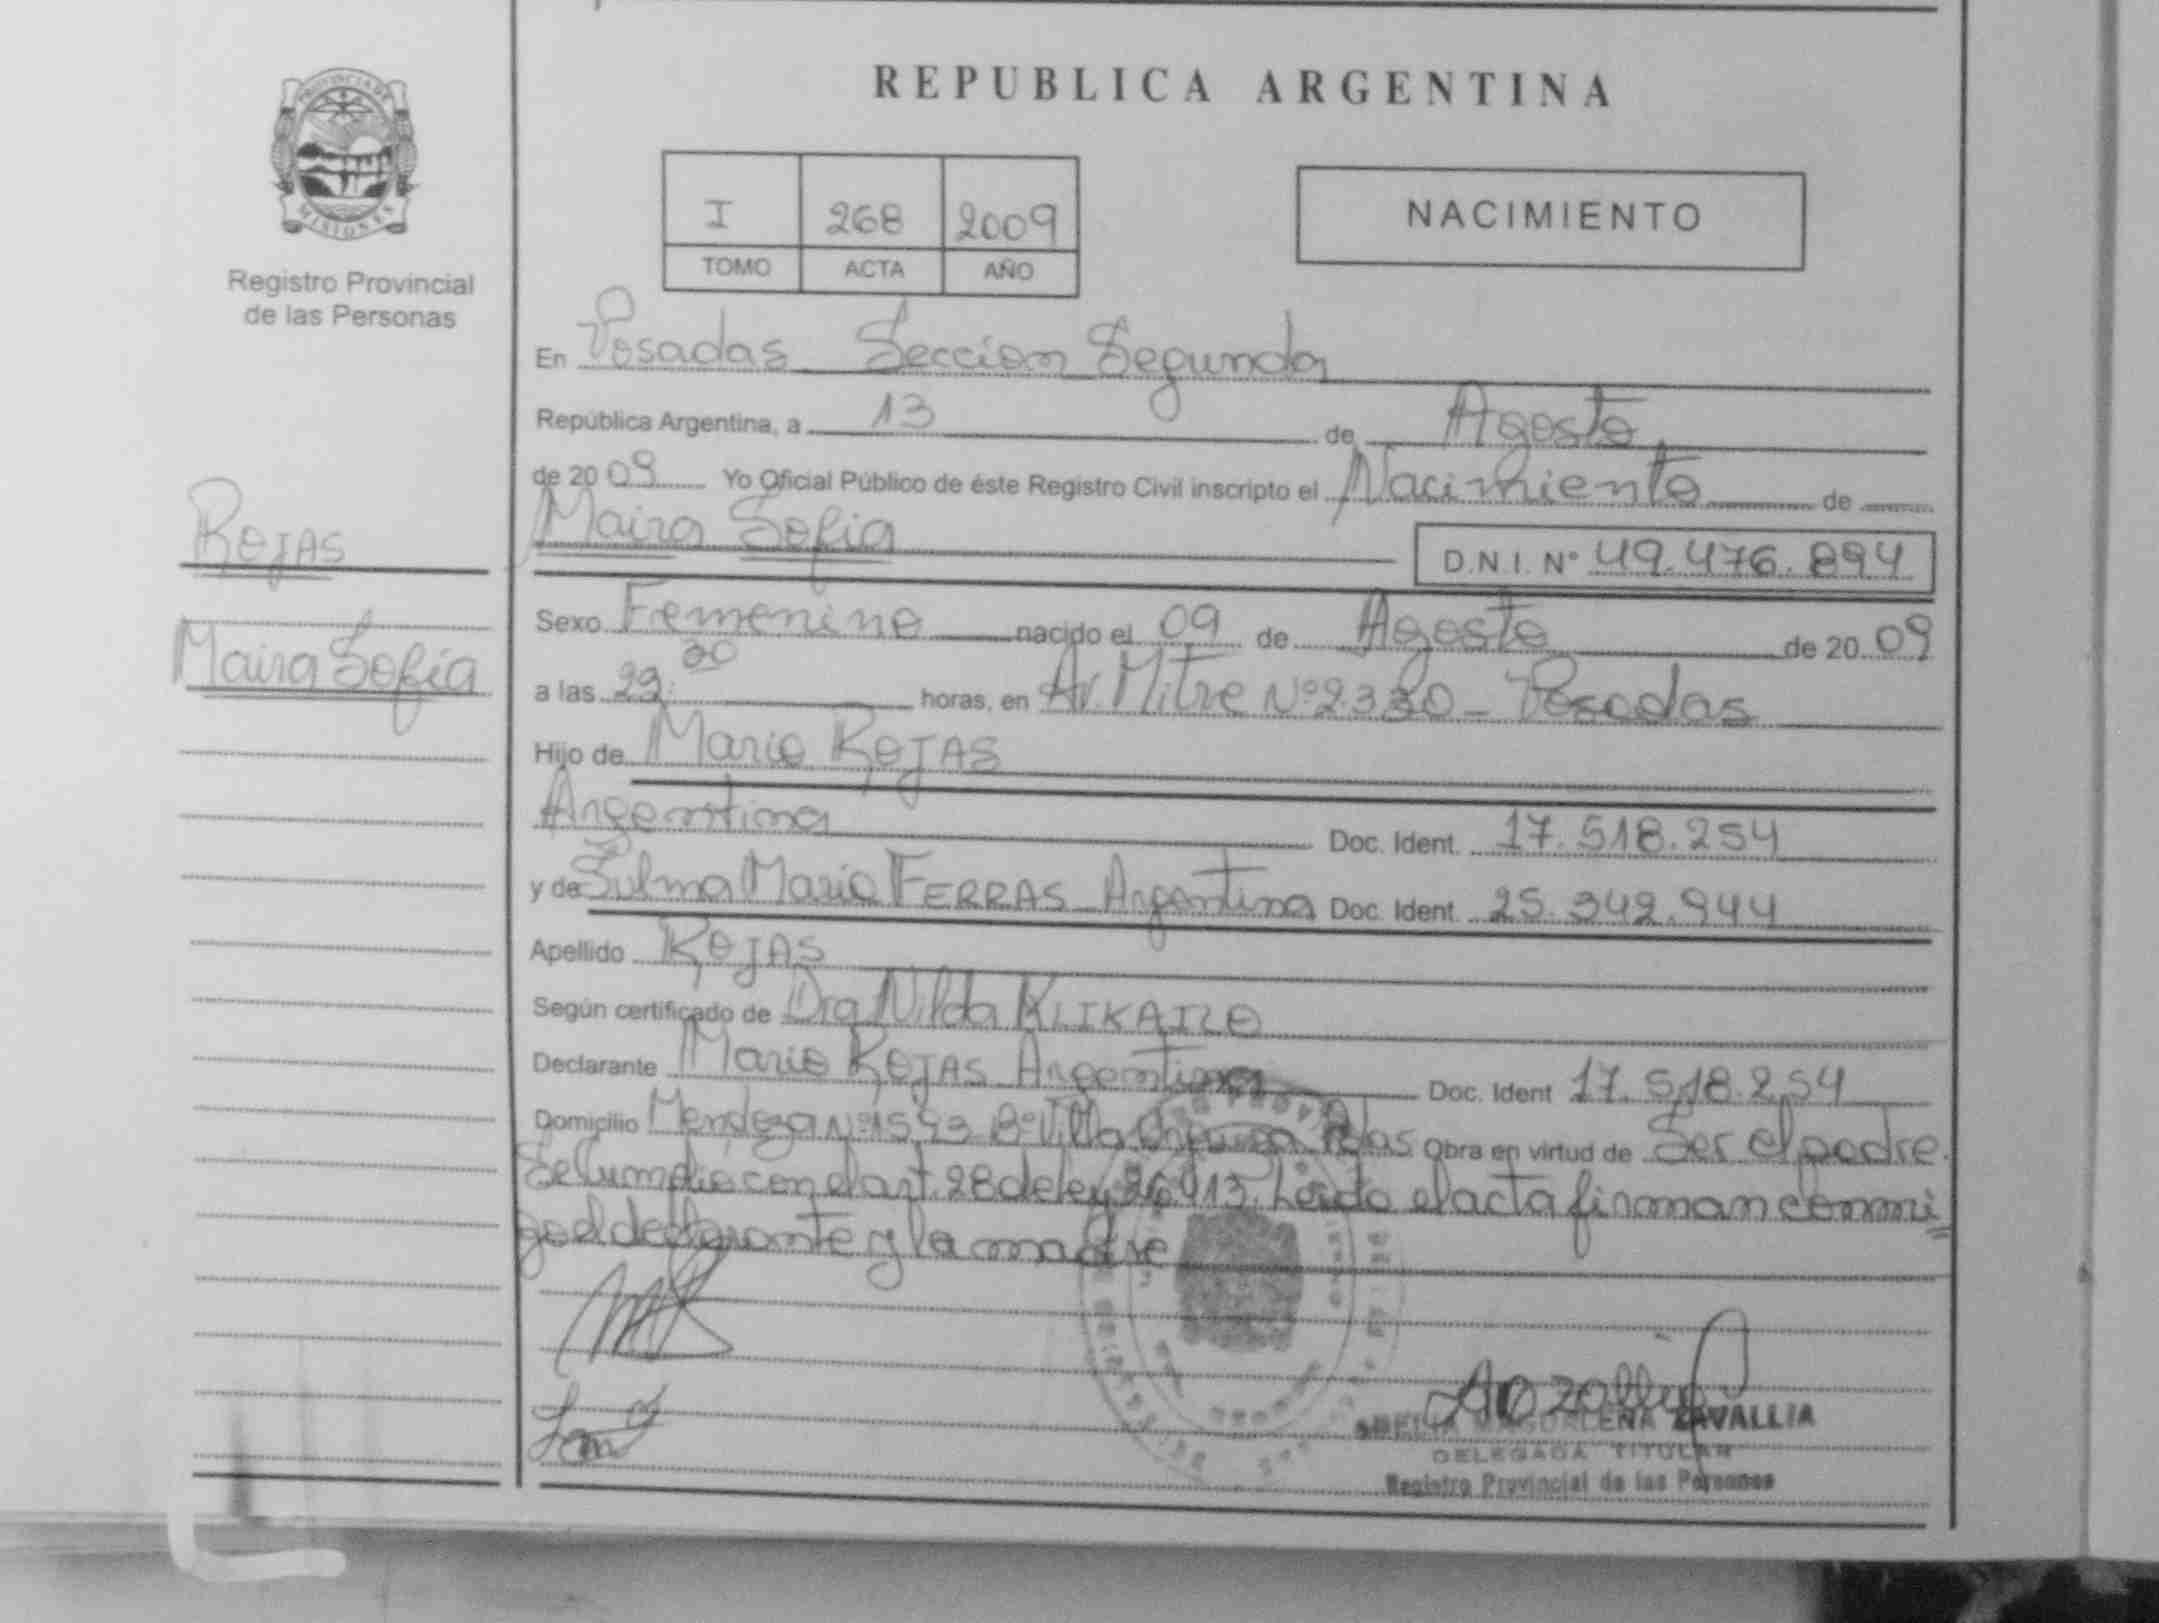 PROVINCIA DE
MISIONES
Registro Provincial
de las Personas
ROJAS
Maira Sofia
REPUBLICA ARGENTINA
I 268 2009
TOMO ACTA AÑO
NACIMIENTO
En Posadas Seccion Segunda
República Argentina, a 13 de Agosto
de 20 09 Yo Oficial Público de éste Registro Civil inscripto el Nacimiento de
Maira Sofia D.N.I. Nº 49.476.894
Sexo Femenino nacido el 09 de Agosto de 20 09
a las horas, en Av. Mitre Nº 2330 - Posadas
Hijo de Mario ROJAS
Argentina Doc. Ident. 17.518.254
y de Sulma Maria FERRAS Argentina Doc. Ident. 25.342.944
Apellido ROJAS
Según certificado de Dra Nilda
Declarante Mario ROJAS Argentina Doc. Ident 17.518.254
Domicilio Mendoza Nº 1593 Bº Villa Pdas Obra en virtud de Ser el padre.
Se cumplio con el art. 28 de ley 26.413. Leido el acta firman conmi
go el declarante y la madre
MAGDALENA ZAVALLIA
DELEGADA TITULAR
Registro Provincial de las Personas